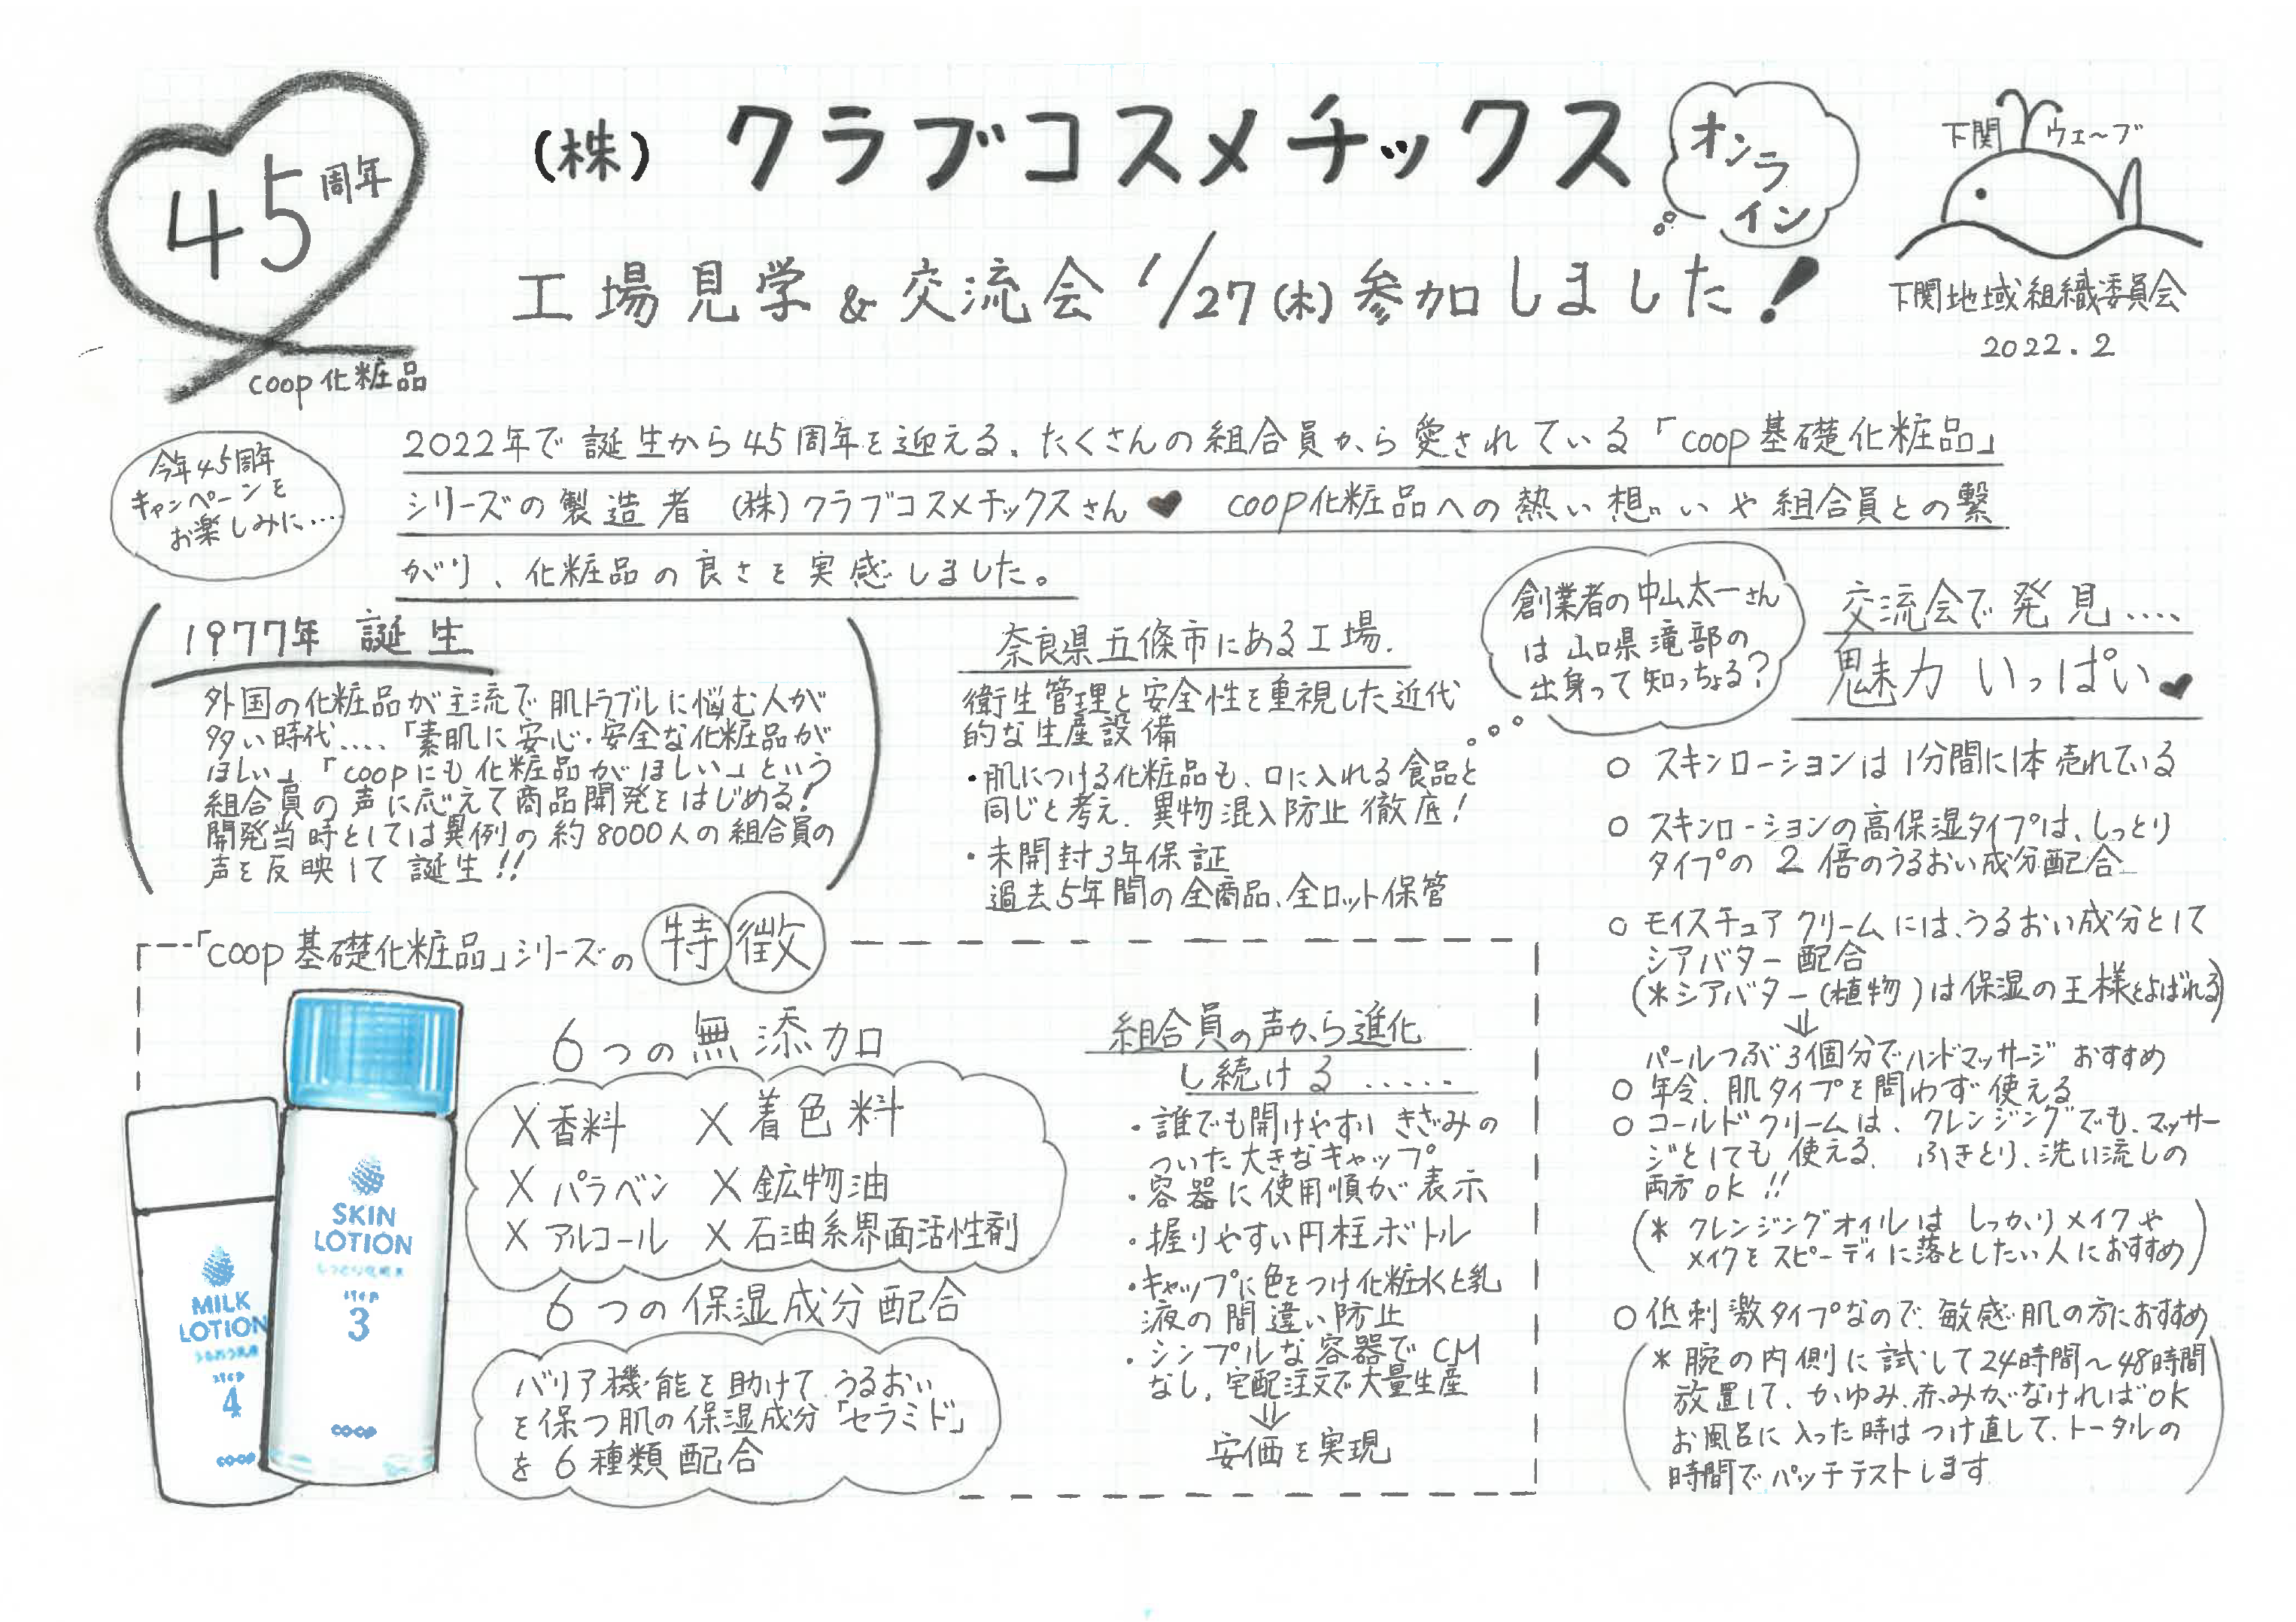 45周年
coop化粧品
(株) クラブコスメチックス
オンライン
工場見学&交流会 1/27(木)参加しました!
下関ウェ〜ブ
下関地域組織委員会
2022.2
今年45周年
キャンペーンを
お楽しみに…
2022年で誕生から45周年を迎える、たくさんの組合員から愛されている「coop基礎化粧品」
シリーズの製造者 (株)クラブコスメチックスさん♥ coop化粧品への熱い想いや組合員との繋
がり、化粧品の良さを実感しました。
1977年 誕生
外国の化粧品が主流で肌トラブルに悩む人が
多い時代....「素肌に安心・安全な化粧品が
ほしい」「coopにも化粧品がほしい」という
組合員の声に応えて商品開発をはじめる!
開発当時としては異例の約8000人の組合員の
声を反映して誕生!!
奈良県五條市にある工場.
衛生管理と安全性を重視した近代
的な生産設備
・肌につける化粧品も、口に入れる食品と
同じと考え、異物混入防止徹底!
・未開封3年保証
過去5年間の全商品、全ロット保管
創業者の中山太一さん
は山口県滝部の
出身って知っちょる?
交流会で発見....
魅力いっぱい♥
○ スキンローションは1分間に1本売れている
○ スキンローションの高保湿タイプは、しっとり
タイプの2倍のうるおい成分配合
○ モイスチュアクリームには、うるおい成分として
シアバター配合
(*シアバター(植物)は保湿の王様とよばれる)
⇓
パールつぶ3個分でハンドマッサージおすすめ
○ 年令、肌タイプを問わず使える
○ コールドクリームは、クレンジングでも、マッサー
ジとしても使える ふきとり、洗い流しの
両方OK!!
(* クレンジングオイルはしっかりメイクや
メイクをスピーディに落としたい人におすすめ)
○ 低刺激タイプなので、敏感肌の方におすすめ
(* 腕の内側に試して24時間〜48時間
放置して、かゆみ、赤みがなければOK
お風呂に入った時はつけ直して、トータルの
時間でパッチテストします)
「coop基礎化粧品」シリーズの特徴
6つの無添加
X香料 X着色料
Xパラベン X鉱物油
Xアルコール X石油系界面活性剤
6つの保湿成分配合
バリア機能を助けて、うるおい
を保つ肌の保湿成分「セラミド」
を6種類配合
組合員の声から進化
し続ける.....
・誰でも開けやすいきざみの
ついた大きなキャップ
・容器に使用順が表示
・握りやすい円柱ボトル
・キャップに色をつけ化粧水と乳
液の間違い防止
・シンプルな容器でCM
なし、宅配注文で大量生産
⇓
安価を実現
SKIN
LOTION
しっとり化粧水
step
3
coop
MILK
LOTION
うるおう乳液
step
4
coop